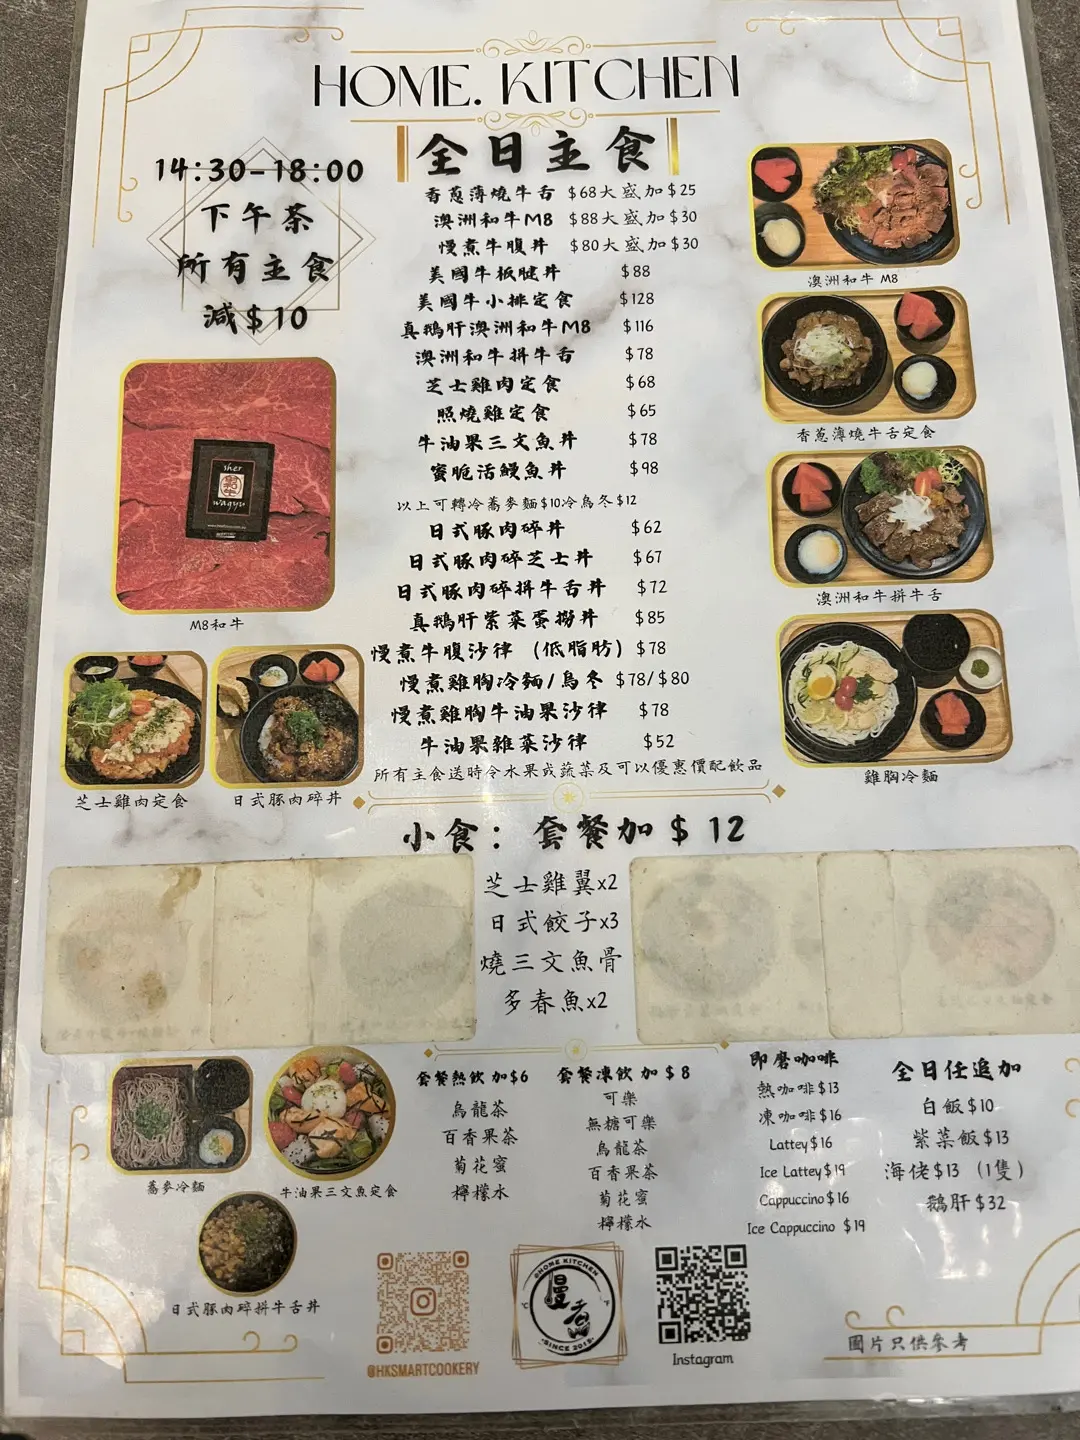 HOME. KITCHEN
14:30-18:00
下午茶
所有主食
減$10
全日主食
香蔥薄燒牛舌 $68大盛加$25
澳洲和牛M8 $88大盛加$30
慢煮牛腹丼 $80大盛加$30
美國牛板腱丼 $88
美國牛小排定食 $128
真鵝肝澳洲和牛M8 $116
澳洲和牛拼牛舌 $78
芝士雞肉定食 $68
照燒雞定食 $65
牛油果三文魚丼 $78
蜜脆活鰻魚丼 $98
以上可轉冷蕎麥麵$10冷烏冬$12
日式豚肉碎丼 $62
日式豚肉碎芝士丼 $67
日式豚肉碎拼牛舌丼 $72
真鵝肝紫菜蛋撈丼 $85
慢煮牛腹沙律 (低脂肪) $78
慢煮雞胸冷麵/烏冬 $78/$80
慢煮雞胸牛油果沙律 $78
牛油果雜菜沙律 $52
所有主食送時令水果或蔬菜及可以優惠價配飲品
sher
wagyu
M8和牛
芝士雞肉定食
日式豚肉碎丼
澳洲和牛 M8
香蔥薄燒牛舌定食
澳洲和牛拼牛舌
雞胸冷麵
小食: 套餐加$12
芝士雞翼x2
日式餃子x3
燒三文魚骨
多春魚x2
蕎麥冷麵
牛油果三文魚定食
日式豚肉碎拼牛舌丼
套餐熱飲加$6
烏龍茶
百香果茶
菊花蜜
檸檬水
套餐凍飲加$8
可樂
無糖可樂
烏龍茶
百香果茶
菊花蜜
檸檬水
即磨咖啡
熱咖啡$13
凍咖啡$16
Lattey$16
Ice Lattey$19
Cappuccino$16
Ice Cappuccino $19
全日任追加
白飯$10
紫菜飯$13
海佬$13 (1隻)
鵝肝$32
@HKSMARTCOOKERY
@HOME KITCHEN
慢煮
SINCE 2019
Instagram
圖片只供參考